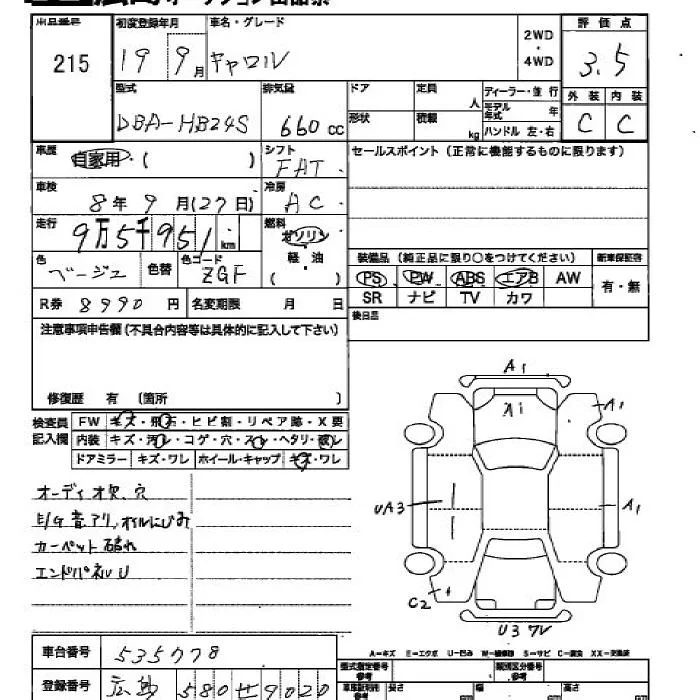 出品番号 初度登録年月 車名・グレード 評価点
215 19 9月 キャロル 2WD・4WD 3.5
型式 排気量 ドア 定員 人 ディーラー・並行 外装 内装
DBA-HB24S 660cc 形状 積載 kg モデル年式 年 ハンドル 左・右 C C
車歴 自家用・( ) シフト FAT セールスポイント(正常に機能するものに限ります)
車検 8年9月(27日) 冷房 AC
走行 9万5千951km 燃料 ガソリン
色 ベージュ 色替 色コード ZGF 軽油 ( ) 装備品(純正品に限り○をつけてください) 新車保証書
PS PW ABS エアB AW 有・無
R券 8990円 名変期限 月 日 SR ナビ TV カワ
注意事項申告欄(不具合内容等は具体的に記入して下さい) 後日品
修復歴 有 (箇所 )
検査員記入欄 FW キズ・飛石・ヒビ割・リペア跡・X要
内装 キズ・汚レ・コゲ・穴・スレ・ヘタリ・破レ
ドアミラー キズ・ワレ ホイール・キャップ キズ・ワレ
オーディオ欠、穴
E/G音アリ,オイルにじみ
カーペット破れ
エンドパネルU
A1
A1 A1
UA3 A1
C2
U3 ワレ
A-キズ E-エクボ U-凹み W-補修跡 S-サビ C-腐食 XX-交換済
車台番号 535778 型式指定番号 類別区分番号
登録番号 広島 580 せ 9020 長さ 幅 高さ